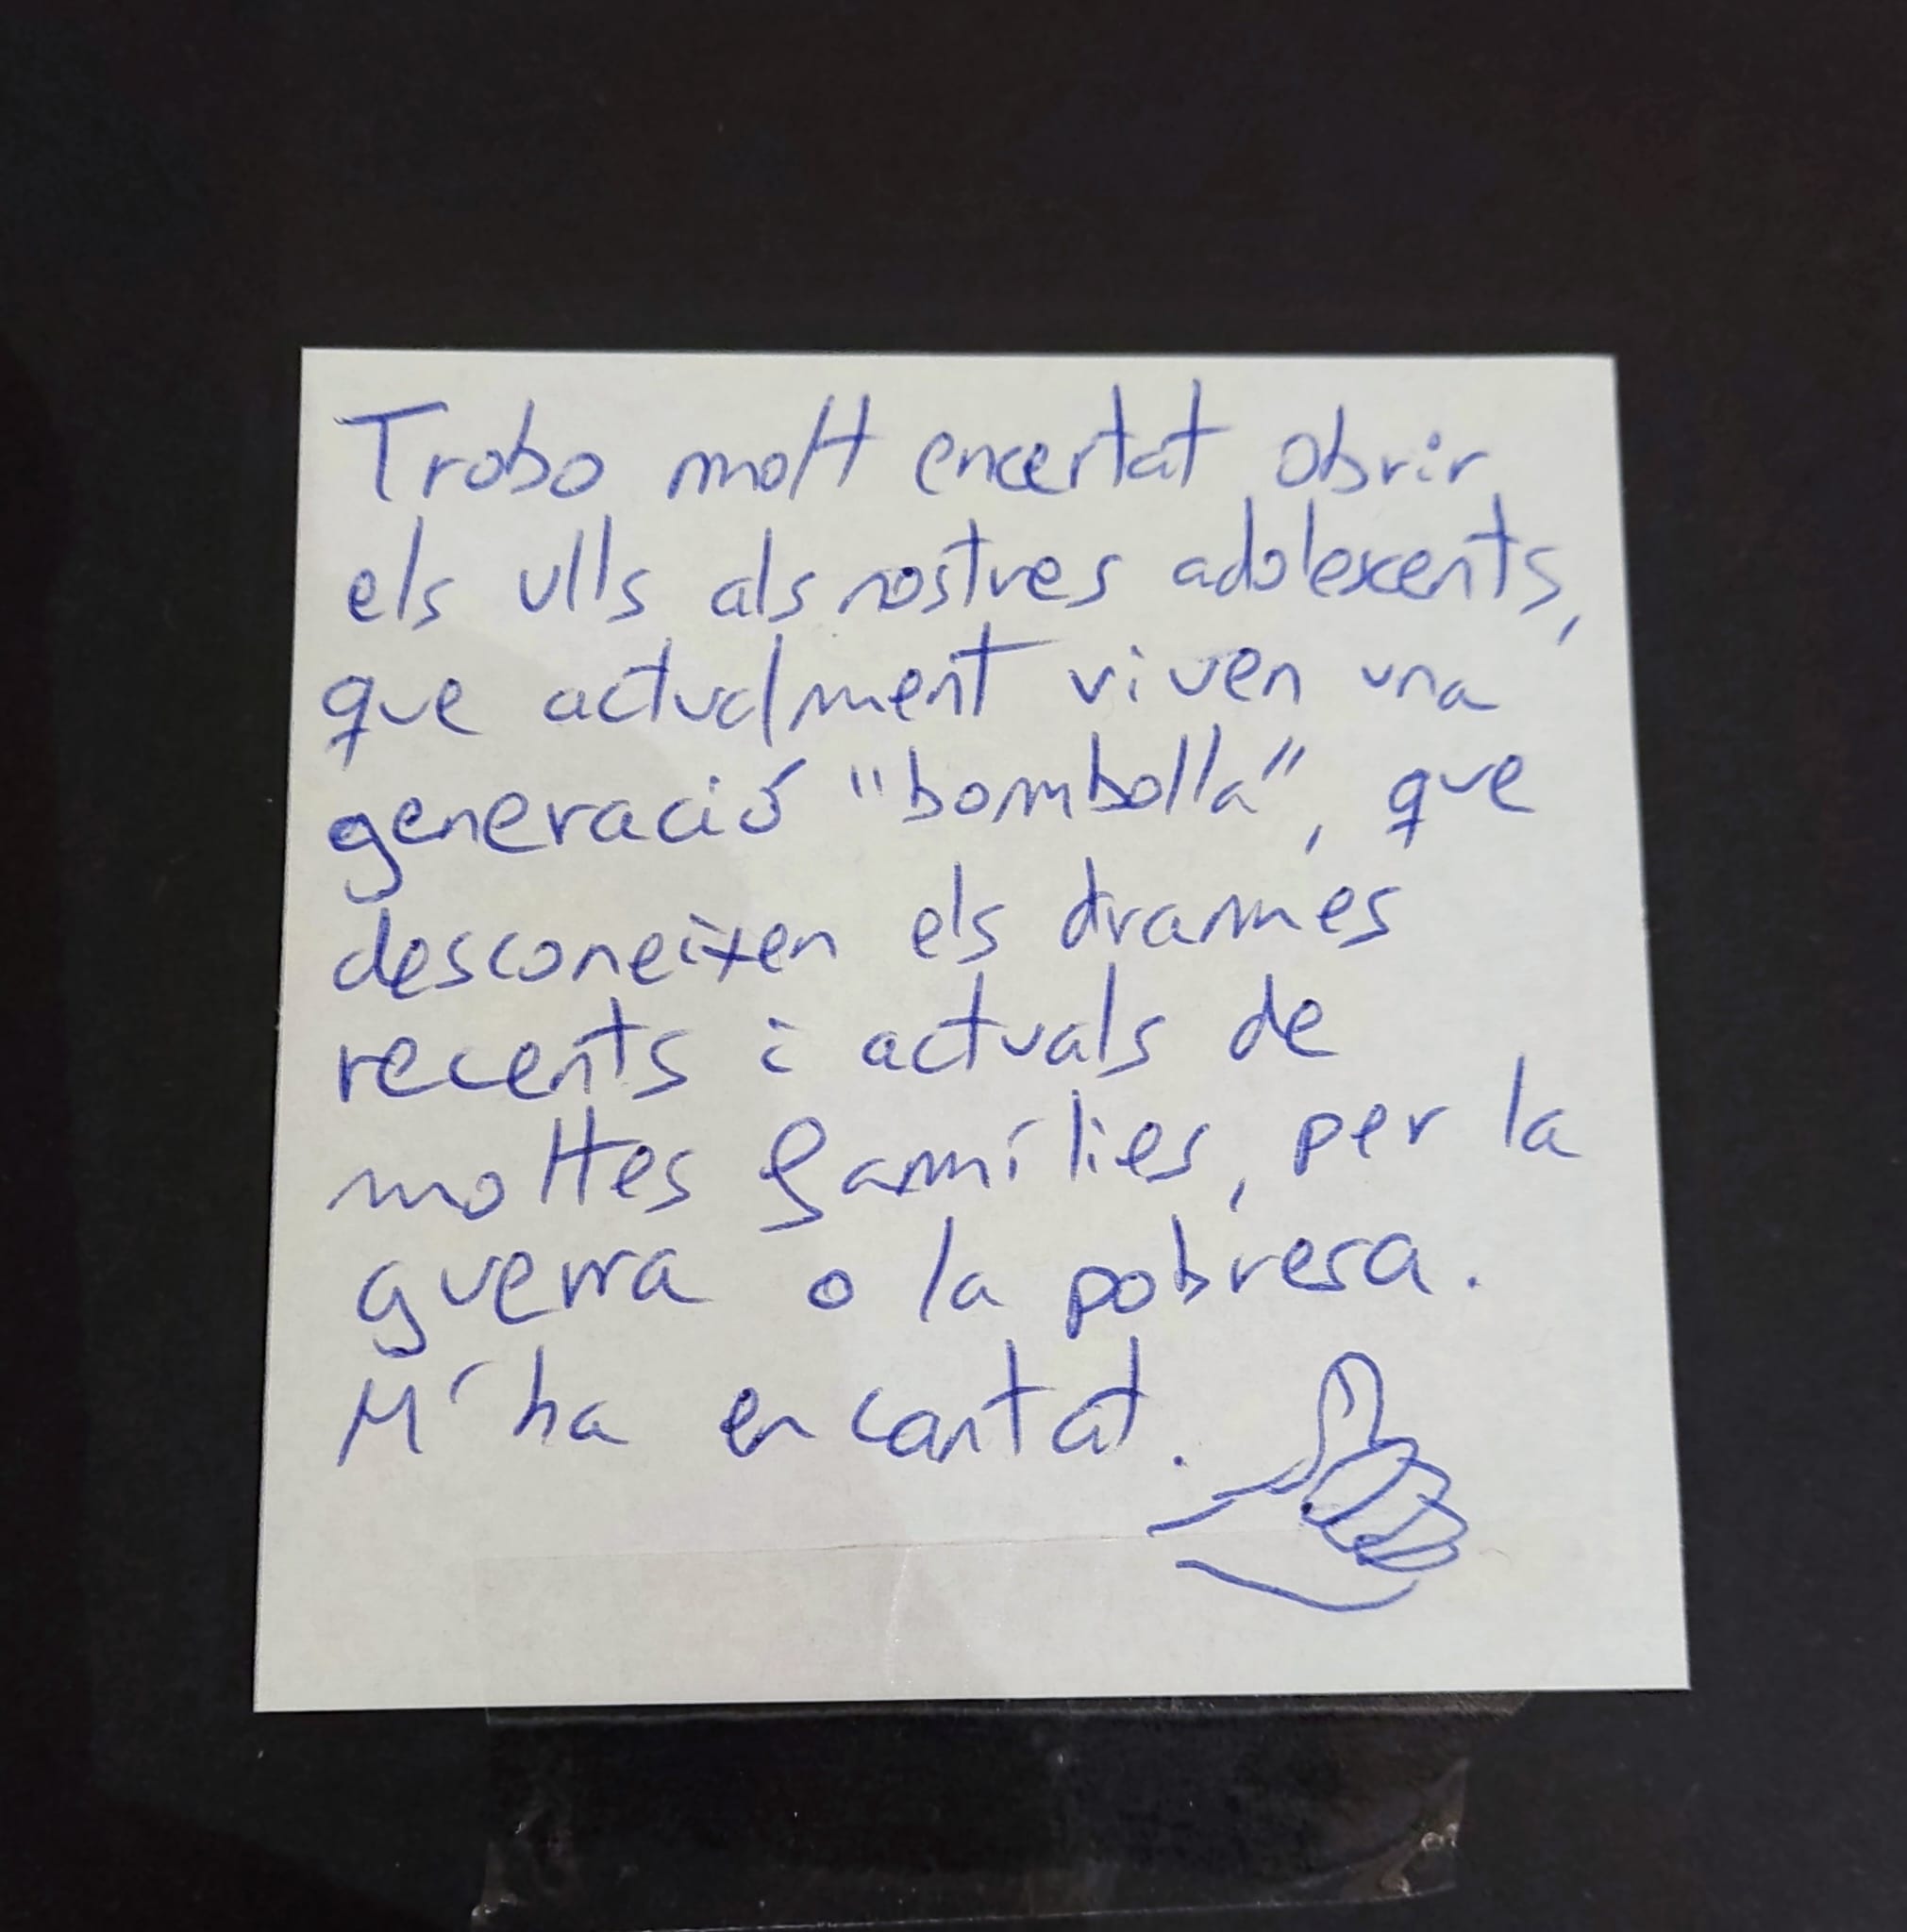 Trobo molt encertat obrir
els ulls als nostres adolescents,
que actualment viven una
generació "bombolla", que
desconeixen els drames
recents i actuals de
moltes famílies, per la
guerra o la pobresa.
M'ha encantat.